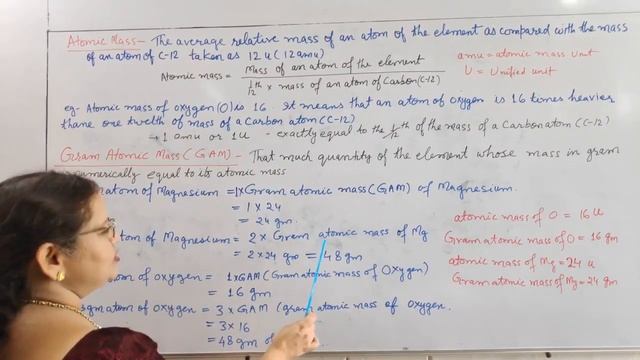 Atomic Mass - The average relative mass of an atom of the element as compared with the mass
of an atom of C-12 taken as 12 u (12 amu)
Atomic mass = Mass of an atom of the element
1/12th × mass of an atom of Carbon (C-12)
amu = atomic mass unit
U = Unified unit
eg- Atomic mass of oxygen (O) is 16 It means that an atom of oxygen is 16 times heavier
thane one twelth of mass of a Carbon atom (C-12)
→ 1 amu or 1 u - exactly equal to the 1/12th of the mass of a Carbon atom (C-12)
Gram Atomic Mass (GAM) - That much quantity of the element whose mass in gram
numerically equal to its atomic mass
atom of Magnesium = 1 × Gram atomic mass (GAM) of Magnesium.
= 1 × 24
= 24 gm.
tom of Magnesium = 2 × Gram atomic mass of Mg
= 2 × 24 gm = 48 gm
atom of oxygen = 1 × GAM (Gram atomic mass of Oxygen)
= 16 gm
gm atom of oxygen = 3 × GAM (gram atomic mass of oxygen.
= 3 × 16
= 48 gm of
atomic mass of O = 16 u
Gram atomic mass of O = 16 gm
atomic mass of Mg = 24 u
Gram atomic mass of Mg = 24 gm